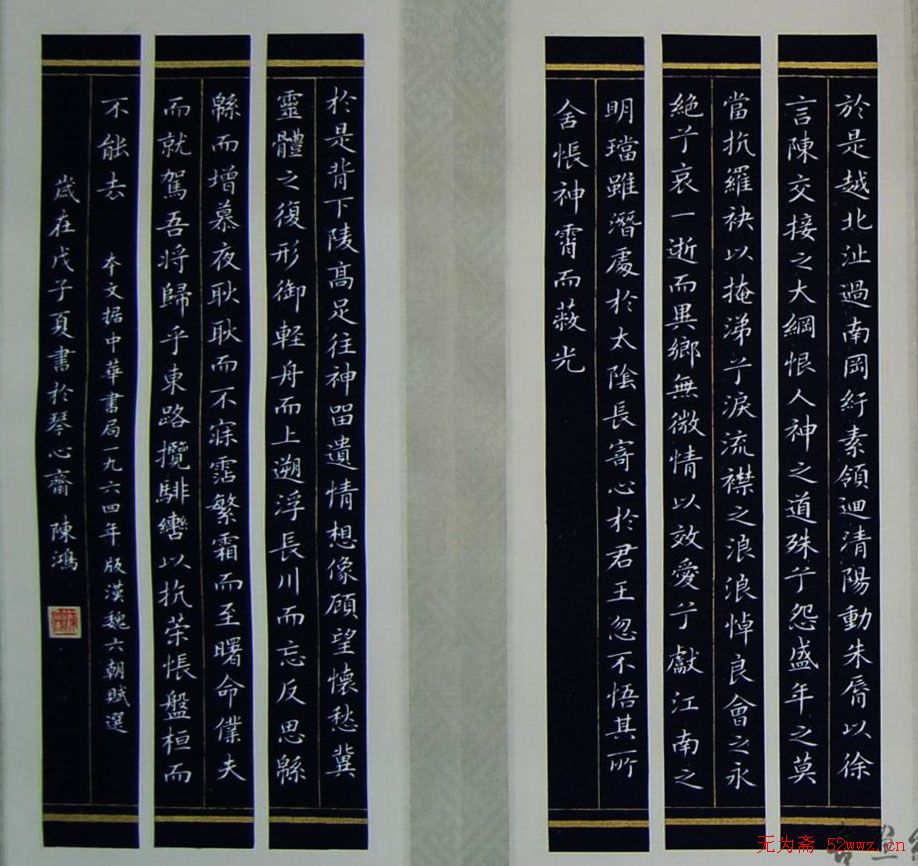 於是越北沚過南岡紆素領迴清陽動朱脣以徐
言陳交接之大綱恨人神之道殊兮怨盛年之莫
當抗羅袂以掩涕兮淚流襟之浪浪悼良會之永
絕兮哀一逝而異鄉無微情以效愛兮獻江南之
明璫雖潛處於太陰長寄心於君王忽不悟其所
舍悵神霄而蔽光
於是背下陵高足往神留遺情想像顧望懷愁冀
靈體之復形御輕舟而上遡浮長川而忘反思緜
緜而增慕夜耿耿而不寐霑繁霜而至曙命僕夫
而就駕吾將歸乎東路攬騑轡以抗策悵盤桓而
不能去 本文据中華書局一九六四年版漢魏六朝賦選
歲在戊子夏書於琴心齋 陳鴻
无为斋 52wwz.cn